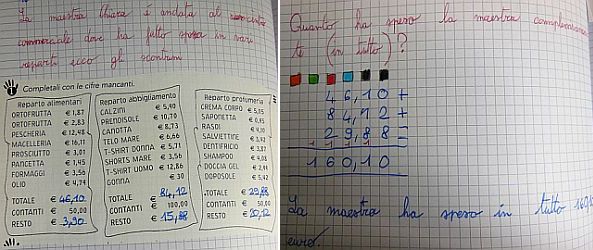 La maestra Chiara è andata al centro
commerciale dove ha fatto spesa in vari
reparti ecco gli scontrini
Completali con le cifre mancanti.
Reparto alimentari
ORTOFRUTTA € 1,87
ORTOFRUTTA € 2,83
PESCHERIA € 12,48
MACELLERIA € 16,11
PROSCIUTTO € 3,01
PANCETTA € 1,45
FORMAGGI € 3,56
OLIO € 4,74
TOTALE € 46,10
CONTANTI € 50,00
RESTO € 3,90
Reparto abbigliamento
CALZINI € 5,40
PRENDISOLE € 10,70
CANOTTA € 8,73
TELO MARE € 6,66
T-SHIRT DONNA € 5,71
SHORTS MARE € 3,56
T-SHIRT UOMO € 12,86
GONNA € 30
TOTALE € 84,12
CONTANTI € 100,00
RESTO € 15,88
Reparto profumeria
CREMA CORPO € 5,05
SAPONETTA € 0,45
RASOI
SALVIETTINE € 3,42
DENTIFRICIO € 3,87
SHAMPOO € 4,08
DOCCIA GEL € 2,41
DOPOSOLE € 5,42
TOTALE € 29,88
CONTANTI € 50,00
RESTO € 20,12
Quanto ha speso la maestra complessivamen
te (in tutto)?
46,10 +
84,12 +
29,88 =
1 1 1 1
160,10
La maestra ha speso in tutto 160,10
euro.